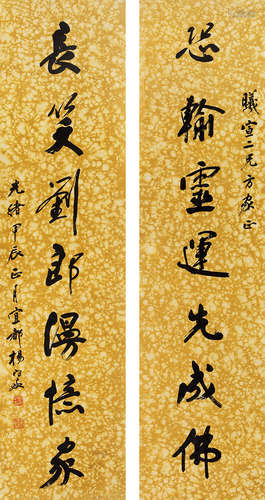 曦宣二兄方家正
恐輸靈運先成佛
長笑劉郎漫憶家
光緒甲辰正月宜都楊守敬